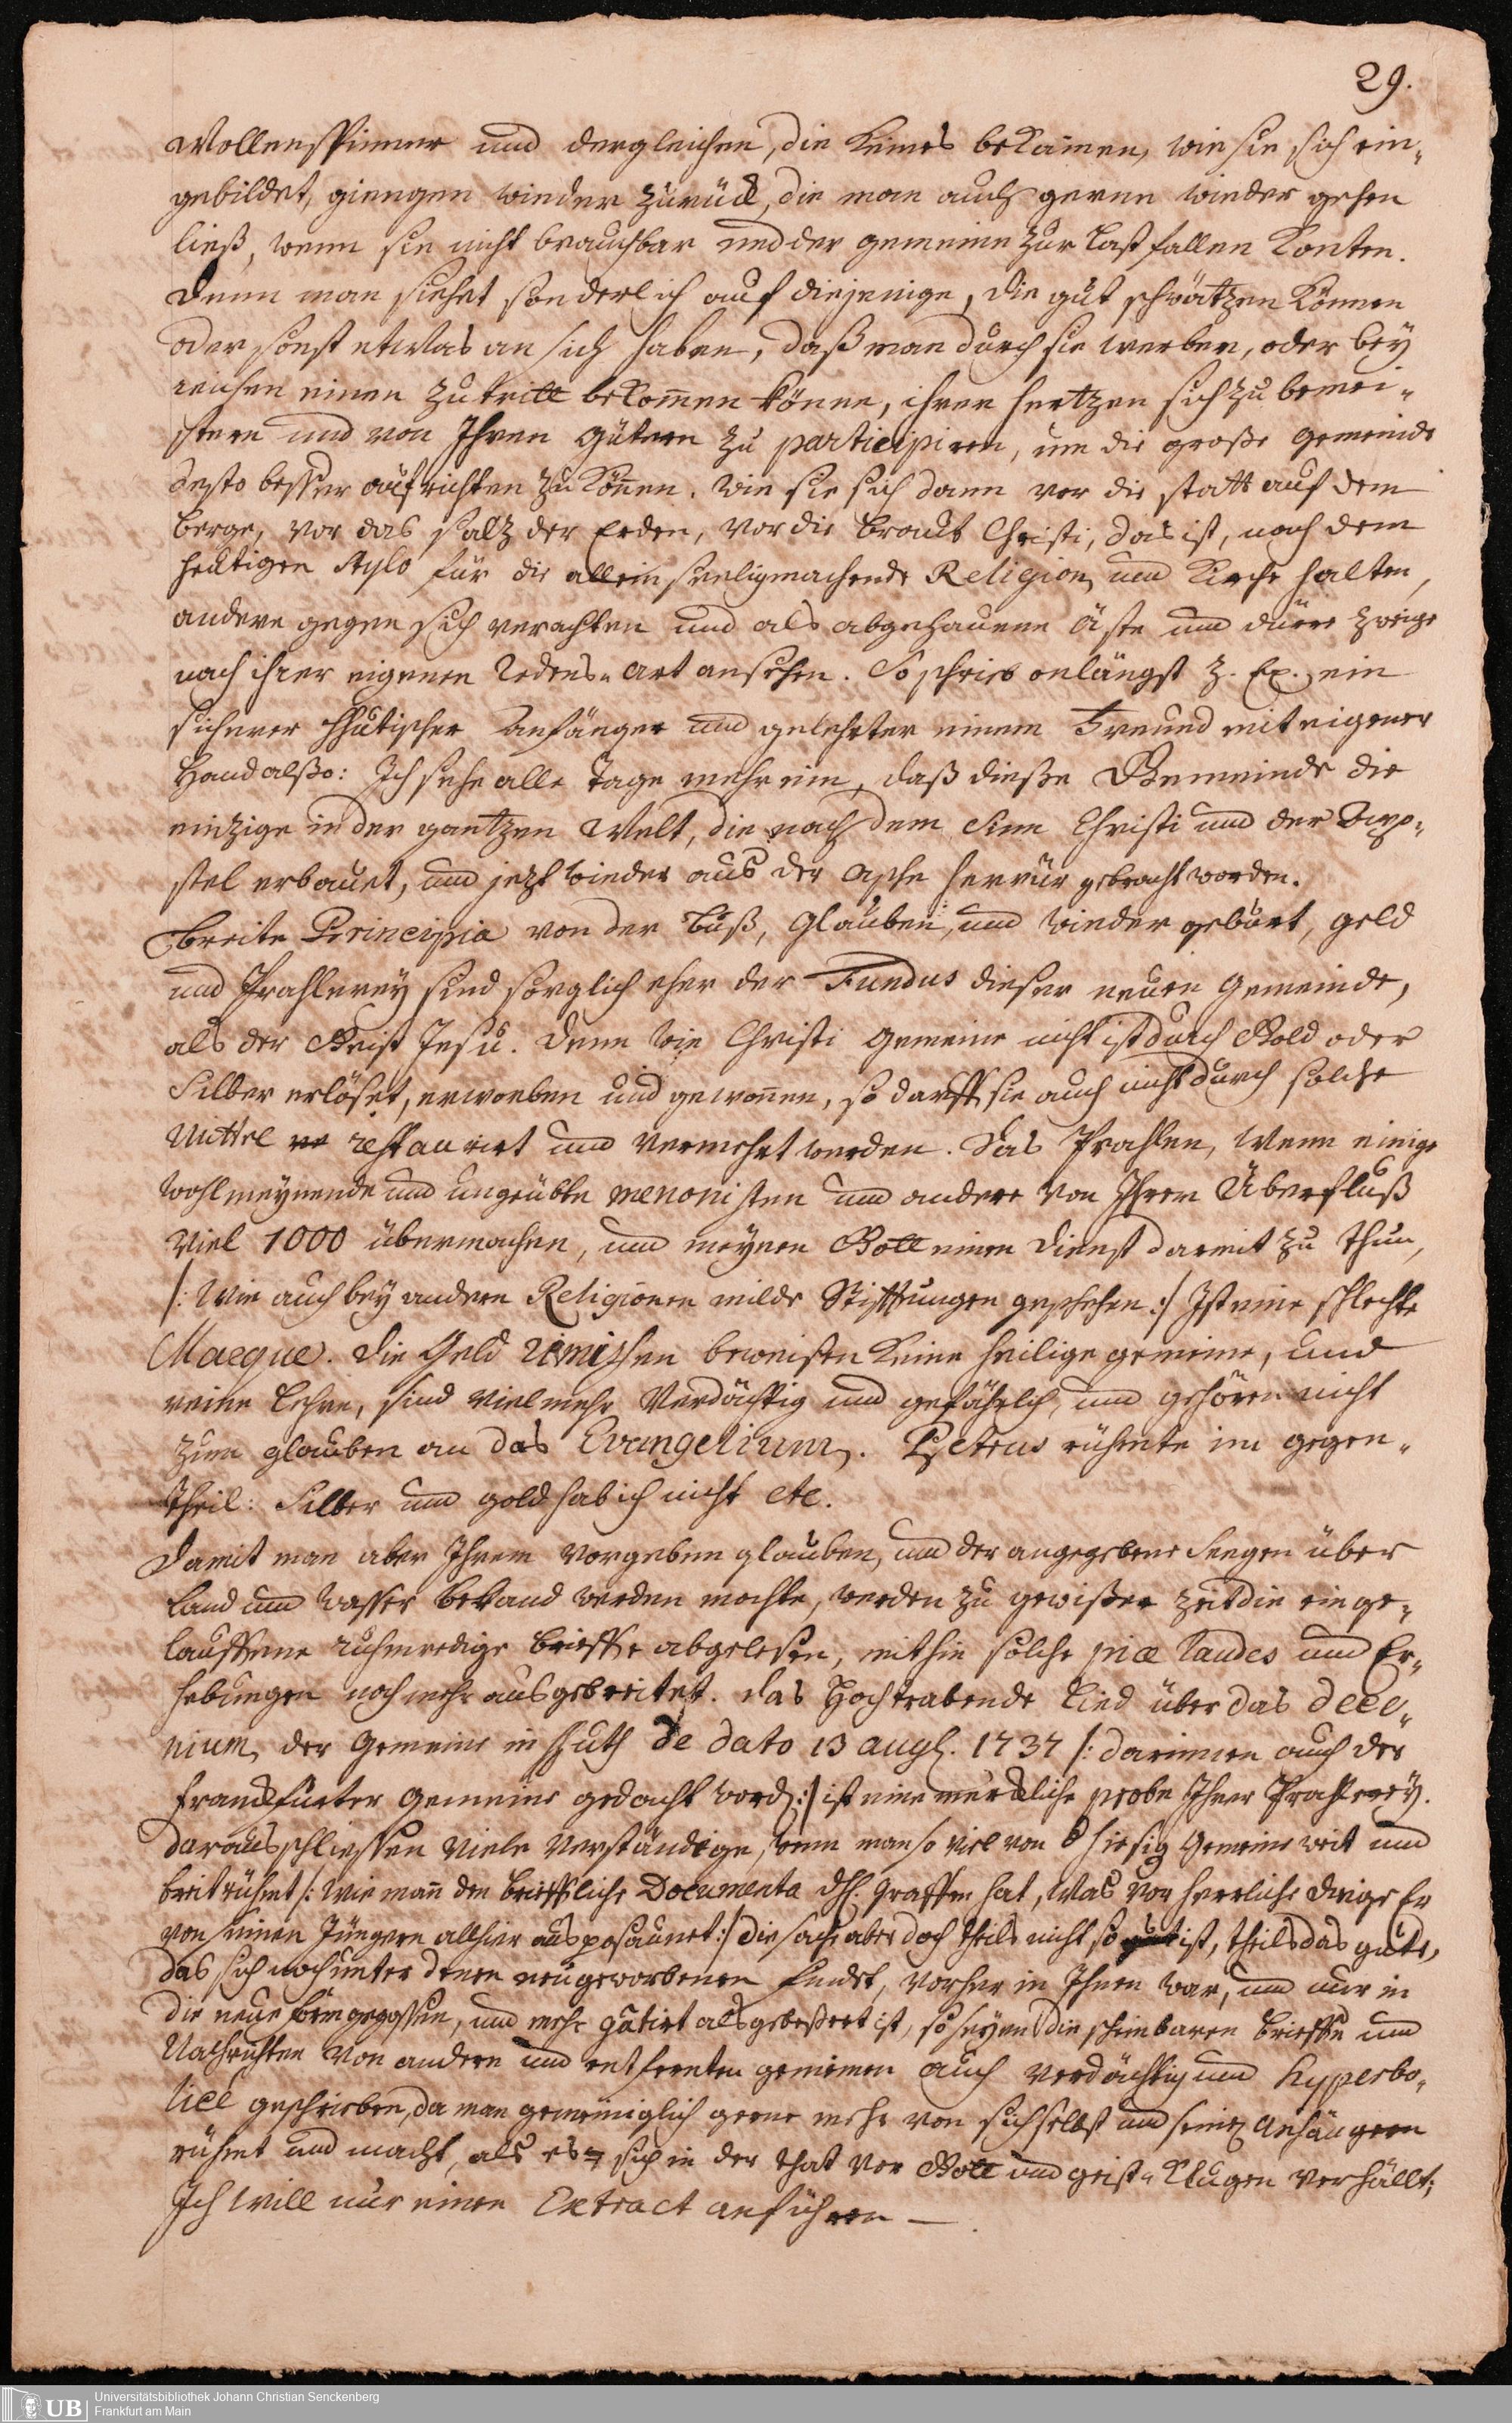 29.
Wollenspinner und dergleichen, die keines bekamen, wie sie sich ein-
gebildet, giengen wieder zurück, die man auch gerne wieder gehen
ließ, wenn sie nicht brauchbar und der gemeine zur Last fallen konten.
Denn man siehet sonderlich auf diejenige, die gut schwätzen können
oder sonst etwas an sich haben, daß man durch sie werben, oder bey
reichen einen Zutritt bekommen könne, ihrer hertzen sich zu bemei-
stern und von Ihren gütern zu participiren, um die große gemeinde
desto besser aufrichten zu können. Wie sie sich dann vor die statt auf dem
berge, vor das saltz der Erden, vor die braut Christi, das ist, nach dem
heutigen Stylo für die allein seeligmachende Religion und Kirche halten,
andere gegen sich verachten und als abgehauene äste und dürre zweige
nach ihrer eigenen redens-art ansehen. So schrieb onlängst z. Ex. ein
sicherer Hhutischer anhänger und gelehrter einem Freund mit eigener
Hand alßo: Ich sehe alle Tage mehr ein, daß dieße Gemeinde die
einzige in der gantzen Welt, die nach dem Sinn Christi und der Apo-
stel erbauet, und jezt wieder aus der asche herfür gebracht worden.
breite Principia von der Buß, glauben, und wieder geburt, geld
und Prahlerey sind sorglich eher der Fundus dieser neuen gemeinde,
als der Geist Jesu. Denn wie Christi gemeine nicht ist durch Gold oder
Silber erlöset, erworben und gewonnen, so darff sie auch nicht durch solche
Mittel restaurirt und vermehrt werden. Das Prahlen, wenn einige
wohlmeynende und ungeübte menonisten und andere von Ihrem Überfluß
viel 1000 übermachen, und meynen Gott einen dienst darmit zu thun,
/: wie auch bey andern Religionen milde Stifftungen geschehen :/ Ist eine schlechte
Marque. Die Geld rimißen beweisen keine heilige gemeine, und
reine Lehre, sind vielmehr verdächtig und gefährlich, und gehören nicht
zum glauben an das Evangelium. Petrus rühmte im gegen-
theil: Silber und gold hab ich nicht etc.
Damit man aber Ihrem vorgeben glauben, und der angegebene Seegen über
Land und Wasser bekand werden mochte, werden zu gewißer Zeit die einge-
lauffene ruhmredige brieffe abgelesen, mithin solche piæ laudes und Er-
hebungen noch mehr ausgebreitet. Das Hochtrabende Lied über das decen-
nium der Gemeine in Hhuth de dato 13 aug. 1737 /: darinnen auch der
Franckfurter Gemeine gedacht word. :/ ist eine merckliche probe Ihrer Prahlerey.
daraus schliessen viele verständige, wenn man so viel von hiesig Gemeine weit und
breit rühmt /: wie man den brieffliche Documenta dH. Graffen hat, was vor herrliche dinge Er
von seinen Jüngern allhier ausposaunet :/ die sache aber doch theils nicht so ist, theils das gute,
das sich noch unter denen neugeworbenen findet, vorher in Ihnen war, und nur in
die neue form gegossen, und mehr gätirt als gebeßert ist, so seyen die scheinbaren brieffe und
Nachrichten von andern und entfernten gemeinen auch verdächtig und hyperbo-
lice geschrieben, da man gemeiniglich gerne mehr von sich selbst und seinen Anhängern
rühmt und macht, als es sich in der that vor Gott und geist-klugen verhällt;
Ich will nur einen Extract anführen —
UB Universitätsbibliothek Johann Christian Senckenberg
Frankfurt am Main